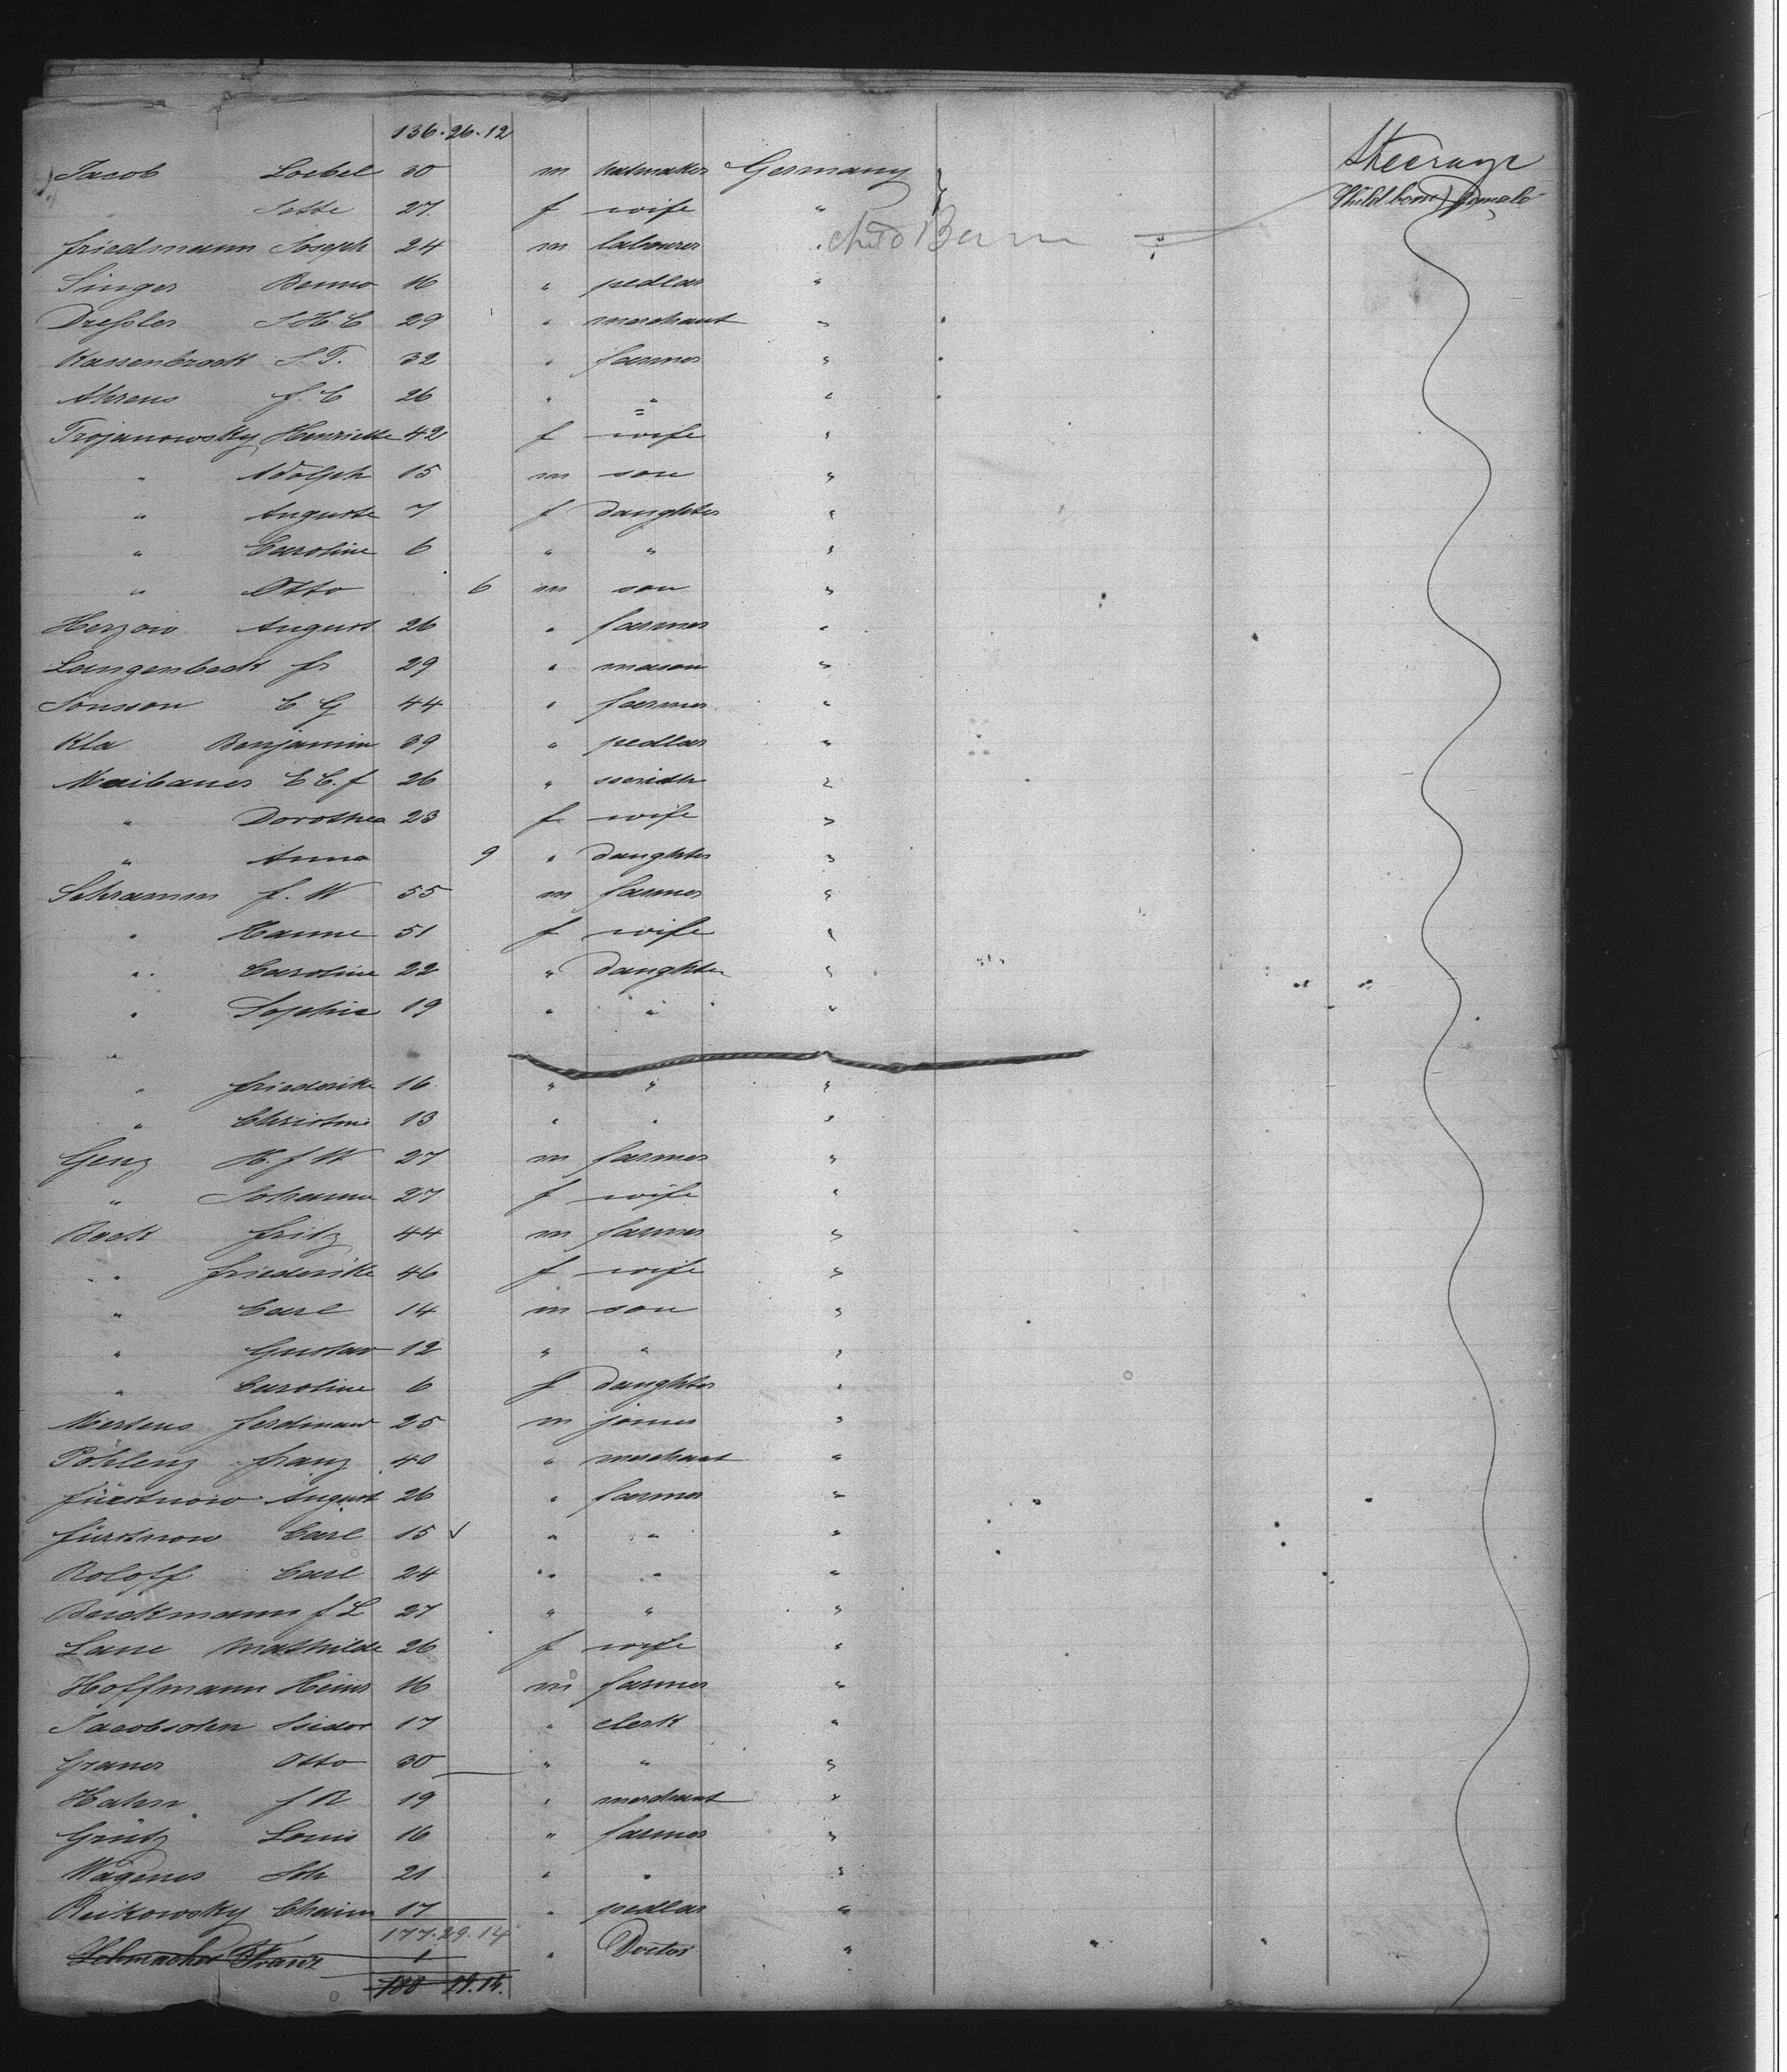 136. 26. 12
Steerage
Jacob Loebel 30 m hatmaker Germany
Jette 27 f wife " Child born female
Friedmann Joseph 24 m labourer " Child Born
Singer Benno 16 " pedlar "
Dreßler J H C 29 " merchant "
Kassenbrock J. F. 32 " farmer "
Ahrens F. C 26 " " "
Trojanowsky Henriette 42 f wife "
" Adolph 15 m son "
" Auguste 7 f daughter "
" Caroline 6 " " "
" Otto 6 m son "
Herzow August 26 " farmer "
Langenbeck Fr 29 " mason "
Jonsson C G 44 " farmer "
Kla Benjamin 39 " pedlar "
Maibauer C C. F 26 " smith "
" Dorothea 23 f wife "
" Anna 9 " daughter "
Schramm F. W 55 m farmer "
" Hanne 51 f wife "
" Caroline 22 " daughter "
" Sophie 19 " " "
"
" Friederike 16 " " "
" Christine 13 " " "
Genz H. F W 27 m farmer "
" Johanna 27 f wife "
Beck Fritz 44 m farmer "
" Friederike 46 f wife "
" Carl 14 m son "
" Gustav 12 " " "
" Caroline 6 f daughter "
Mertens Ferdinand 25 m joiner "
Pohlenz Franz 40 " merchant "
Fürstnow August 26 " farmer "
Fürstnow Carl 15 " " "
Roloff Carl 24 " " "
Beckmann F L 27 " " "
Lane Mathilde 26 f wife "
Hoffmann Heinr 16 m farmer "
Jacobsohn Isidor 17 " clerk "
Graner Otto 30 " " "
Hahn F R 19 " merchant "
Grütz Louis 16 " farmer "
Wagener Joh 21 " " "
Reikowsky Chaim 17 " pedlar "
177. 29. 14
Franz 1 " Doctor "
188 29. 14.